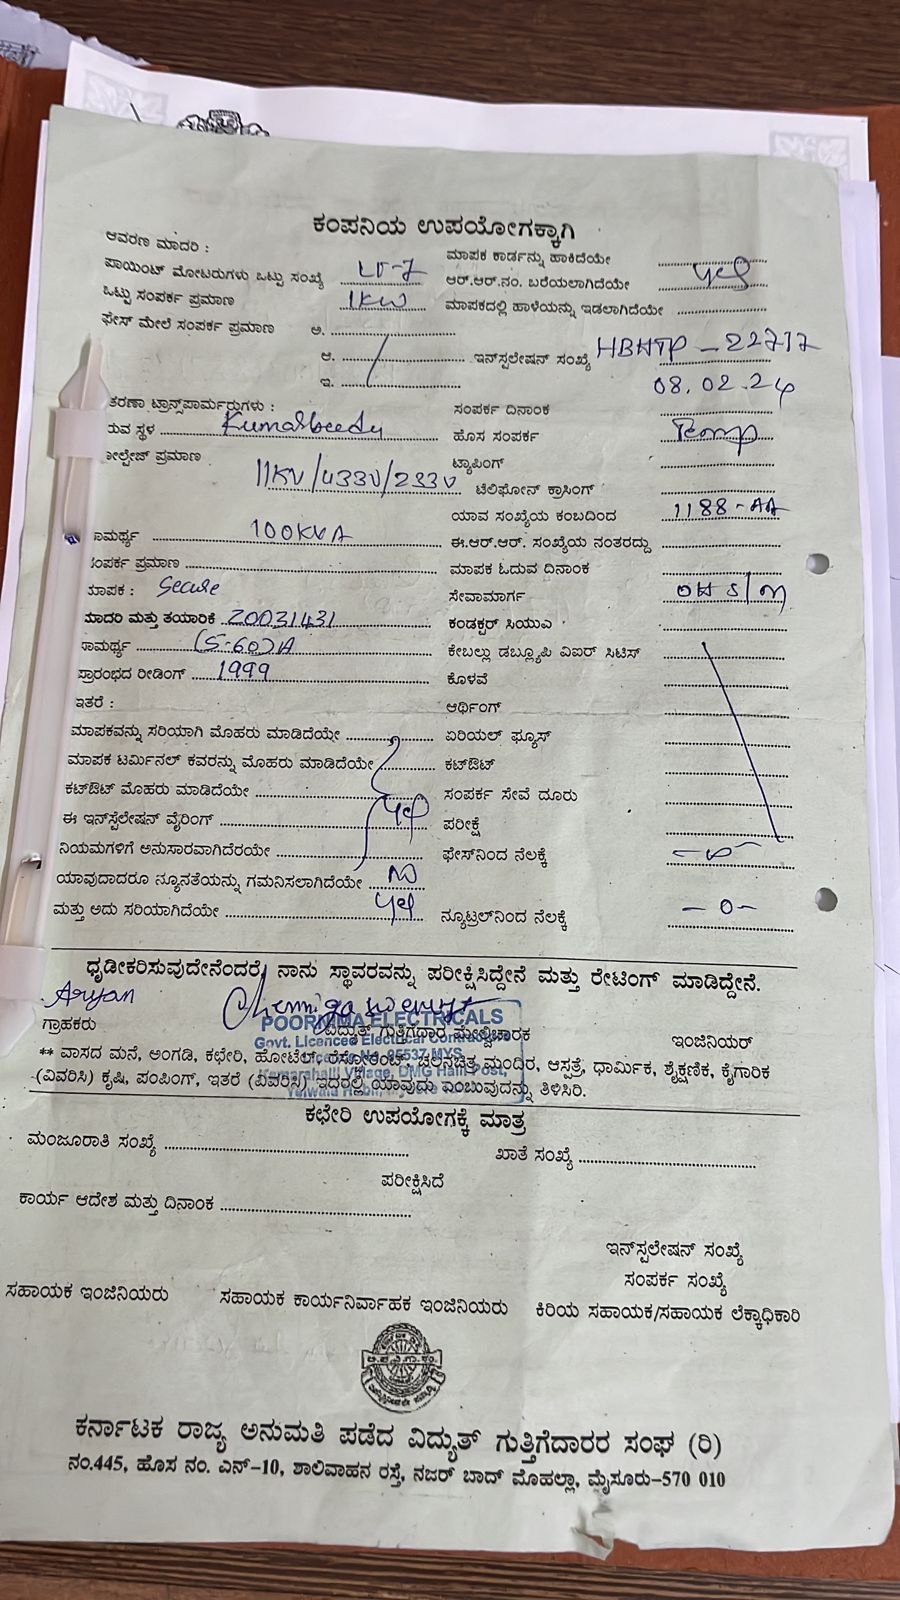 ಕಂಪನಿಯ ಉಪಯೋಗಕ್ಕಾಗಿ
ಆವರಣ ಮಾದರಿ :
ಮಾಪಕ ಕಾರ್ಡನ್ನು ಹಾಕಿದೆಯೇ
ಪಾಯಿಂಟ್ ಮೋಟರುಗಳು ಒಟ್ಟು ಸಂಖ್ಯೆ LT-7 ಆರ್.ಆರ್.ನಂ. ಬರೆಯಲಾಗಿದೆಯೇ yes
ಒಟ್ಟು ಸಂಪರ್ಕ ಪ್ರಮಾಣ 1KW ಮಾಪಕದಲ್ಲಿ ಹಾಳೆಯನ್ನು ಇಡಲಾಗಿದೆಯೇ
ಫೇಸ್ ಮೇಲೆ ಸಂಪರ್ಕ ಪ್ರಮಾಣ ಅ.
ಆ. ಇನ್‌ಸ್ಪಲೇಷನ್ ಸಂಖ್ಯೆ HBHTP - 22717
ಇ. 08.02.24
ತರಣಾ ಟ್ರಾನ್ಸ್‌ಪಾರ್ಮರುಗಳು : ಸಂಪರ್ಕ ದಿನಾಂಕ
ಯವ ಸ್ಥಳ Kumarbeedu ಹೊಸ ಸಂಪರ್ಕ Temp
ೋಲ್ಟೇಜ್ ಪ್ರಮಾಣ ಟ್ಯಾಪಿಂಗ್
11KV/433V/233V ಟೆಲಿಫೋನ್ ಕ್ರಾಸಿಂಗ್
ಯಾವ ಸಂಖ್ಯೆಯ ಕಂಬದಿಂದ 1188-AA
ಾಮರ್ಥ್ಯ 100KVA ಈ.ಆರ್.ಆರ್. ಸಂಖ್ಯೆಯ ನಂತರದ್ದು
ಸಂಪರ್ಕ ಪ್ರಮಾಣ ಮಾಪಕ ಓದುವ ದಿನಾಂಕ
ಮಾಪಕ : Secure ಸೇವಾಮಾರ್ಗ OH S/M
ಮಾದರಿ ಮತ್ತು ತಯಾರಿಕೆ 20031431 ಕಂಡಕ್ಟರ್ ಸಿಯುವಿ
ಾಮರ್ಥ್ಯ (5-60)A ಕೇಬಲ್ಲು ಡಬ್ಲ್ಯೂಪಿ ವಿಐರ್ ಸಿಟಿಸ್
ಪ್ರಾರಂಭದ ರೀಡಿಂಗ್ 1999 ಕೊಳವೆ
ಇತರೆ : ಆರ್ಥಿಂಗ್
ಮಾಪಕವನ್ನು ಸರಿಯಾಗಿ ಮೊಹರು ಮಾಡಿದೆಯೇ ಏರಿಯಲ್ ಫ್ಯೂಸ್
ಮಾಪಕ ಟರ್ಮಿನಲ್ ಕವರನ್ನು ಮೊಹರು ಮಾಡಿದೆಯೇ ಕಟ್‌ಔಟ್
ಕಟ್‌ಔಟ್ ಮೊಹರು ಮಾಡಿದೆಯೇ yes ಸಂಪರ್ಕ ಸೇವೆ ದೂರು
ಈ ಇನ್‌ಸ್ಪೆಲೇಷನ್ ವೈರಿಂಗ್ ಪರೀಕ್ಷೆ
ನಿಯಮಗಳಿಗೆ ಅನುಸಾರವಾಗಿದೆರಯೇ ಫೇಸ್‌ನಿಂದ ನೆಲಕ್ಕೆ -∞-
ಯಾವುದಾದರೂ ನ್ಯೂನತೆಯನ್ನು ಗಮನಿಸಲಾಗಿದೆಯೇ NO
ಮತ್ತು ಅದು ಸರಿಯಾಗಿದೆಯೇ yes ನ್ಯೂಟ್ರಲ್‌ನಿಂದ ನೆಲಕ್ಕೆ -0-
ಧೃಡೀಕರಿಸುವುದೇನೆಂದರೆ, ನಾನು ಸ್ಥಾವರವನ್ನು ಪರೀಕ್ಷಿಸಿದ್ದೇನೆ ಮತ್ತು ರೇಟಿಂಗ್ ಮಾಡಿದ್ದೇನೆ.
Aryan
POORNIMA ELECTRICALS
ಗ್ರಾಹಕರು ವಿದ್ಯುತ್ ಗುತ್ತಿಗೆದಾರ ಮೇಲ್ವಿಚಾರಕ ಇಂಜಿನಿಯರ್
Govt. Licenced Electrical Contractors
** ವಾಸದ ಮನೆ, ಅಂಗಡಿ, ಕಛೇರಿ, ಹೋಟೆಲ್, ರೆಸ್ಟೋರೆಂಟ್, ಚಲನಚಿತ್ರ ಮಂದಿರ, ಆಸ್ಪತ್ರೆ, ಧಾರ್ಮಿಕ, ಶೈಕ್ಷಣಿಕ, ಕೈಗಾರಿಕ
(ವಿವರಿಸಿ) ಕೃಷಿ, ಪಂಪಿಂಗ್, ಇತರೆ (ವಿವರಿಸಿ) ಇದರಲ್ಲಿ ಯಾವುದು ಎಂಬುವುದನ್ನು ತಿಳಿಸಿರಿ.
ಕಛೇರಿ ಉಪಯೋಗಕ್ಕೆ ಮಾತ್ರ
ಮಂಜೂರಾತಿ ಸಂಖ್ಯೆ ಖಾತೆ ಸಂಖ್ಯೆ
ಪರೀಕ್ಷಿಸಿದೆ
ಕಾರ್ಯ ಆದೇಶ ಮತ್ತು ದಿನಾಂಕ
ಇನ್‌ಸ್ಪಲೇಷನ್ ಸಂಖ್ಯೆ
ಸಂಪರ್ಕ ಸಂಖ್ಯೆ
ಸಹಾಯಕ ಇಂಜಿನಿಯರು ಸಹಾಯಕ ಕಾರ್ಯನಿರ್ವಾಹಕ ಇಂಜಿನಿಯರು ಕಿರಿಯ ಸಹಾಯಕ/ಸಹಾಯಕ ಲೆಕ್ಕಾಧಿಕಾರಿ
ಕರ್ನಾಟಕ ರಾಜ್ಯ ಅನುಮತಿ ಪಡೆದ ವಿದ್ಯುತ್ ಗುತ್ತಿಗೆದಾರರ ಸಂಘ (ರಿ)
ನಂ.445, ಹೊಸ ನಂ. ಎನ್-10, ಶಾಲಿವಾಹನ ರಸ್ತೆ, ನಜರ್ ಬಾದ್ ಮೊಹಲ್ಲಾ, ಮೈಸೂರು-570 010